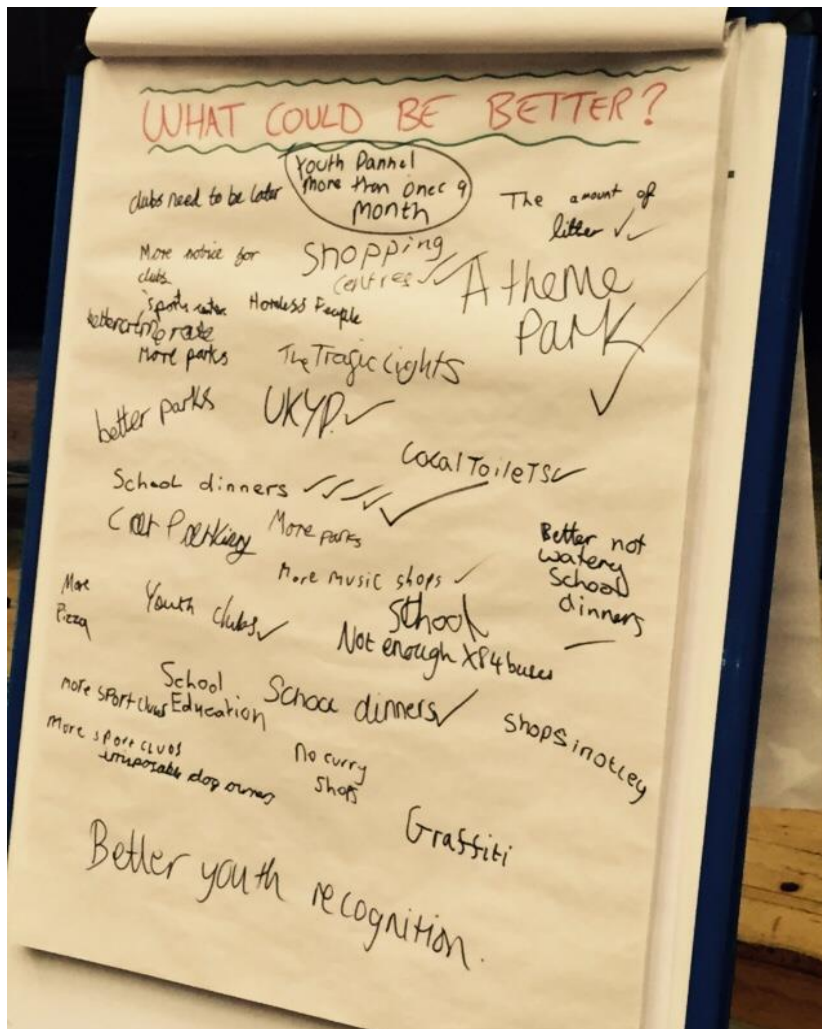 WHAT COULD BE BETTER?
Youth Pannel
more than onec a
Month
clubs need to be later
The amount of
litter ✓✓
More notice for
clubs
Shopping
centres ✓✓
A theme
Park ✓
sports
Homeless People
better crime rate
More parks
The Trafic Lights
better parks
UKYP. ✓
Local ToileTS ✓
School dinners ✓✓✓✓✓
Car Parking
More parks
Better not
watery
School
dinners
More music shops ✓
More
Pizza
Youth clubs ✓
School
Not enough X84 buses
School
Education
more sport clubs
School dinners ✓
Shops in otley
More sport clubs
dog owners
No curry
Shops
Graffiti
Better youth recognition.